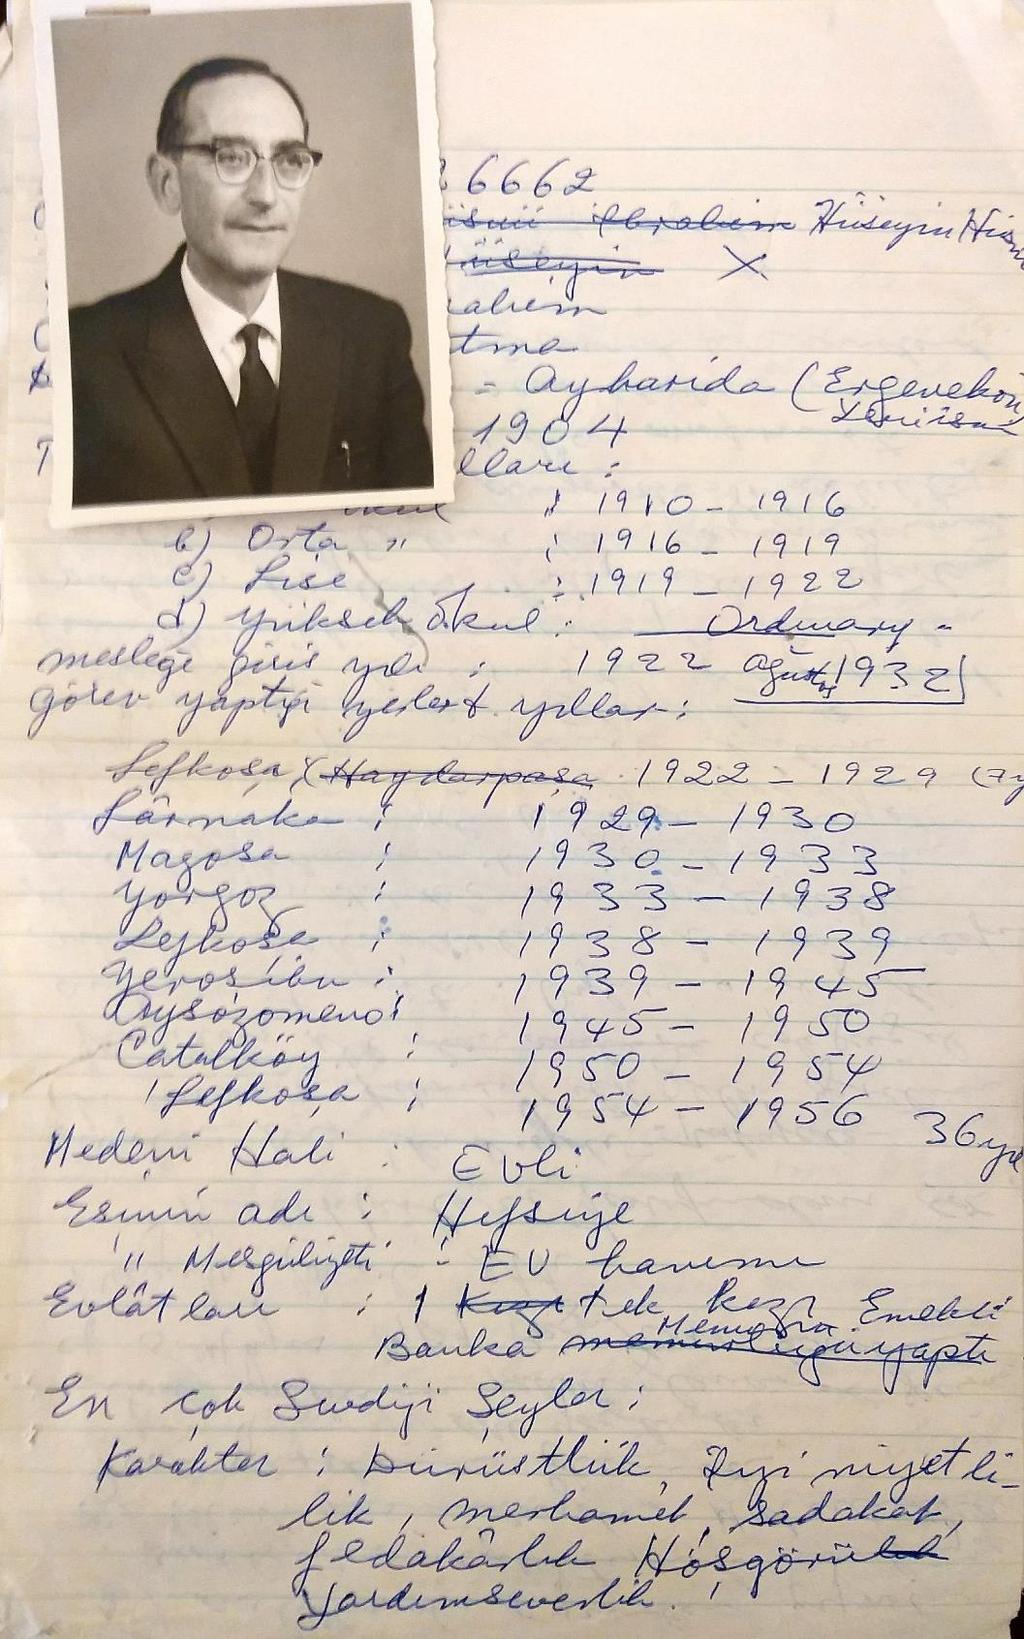 26662
İbrahim Hüseyin Hüsn
Hüseyin X
rahim
tma
- Aybarida (Ergenekon
1904
lları :
okul : 1910 - 1916
b) Orta " : 1916 - 1919
c) Lise : 1919 - 1922
d) Yüksek Okul : Ordinary -
mesleğe giriş yılı : 1922 ağustos 1932
Görev yaptığı yerler & yıllar :
Lefkoşa, (Haydarpaşa 1922 - 1929
Lârnaka : 1929 - 1930
Magosa : 1930 - 1933
Yorgoz : 1933 - 1938
Lefkoşa : 1938 - 1939
Yerosibu : 1939 - 1945
Aysozomeno : 1945 - 1950
Çatalköy : 1950 - 1954
Lefkoşa : 1954 - 1956 36 yıl
Medeni Hali : Evli
Eşinin adı : Hıfsiye
" Meşguliyeti : EV hanımı
Evlâtları : 1 Kızı tek kızı Emekli
Banka Memuru memurluğu yaptı
En çok Sevdiği Şeyler :
Karakter : Dürüstlük, İyi niyetli-
lik, merhamet, sadakat,
fedakârlık Hoşgörülük
Yardımseverlik.